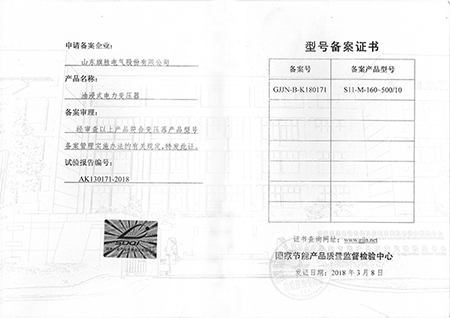 申请备案企业:
山东旗胜电气股份有限公司
产品名称:
油浸式电力变压器
备案审理:
经审查以上产品符合变压器产品型号
备案管理实施办法的有关规定,特发此证。
试验报告编号:
AK130171-2018
SDQI
型号备案证书
备案号 备案产品型号
GJJN-B-K180171 S11-M-160~500/10
证书查询网址: www.gjjn.net
国家节能产品质量监督检验中心
发证日期: 2018 年 3 月 8 日